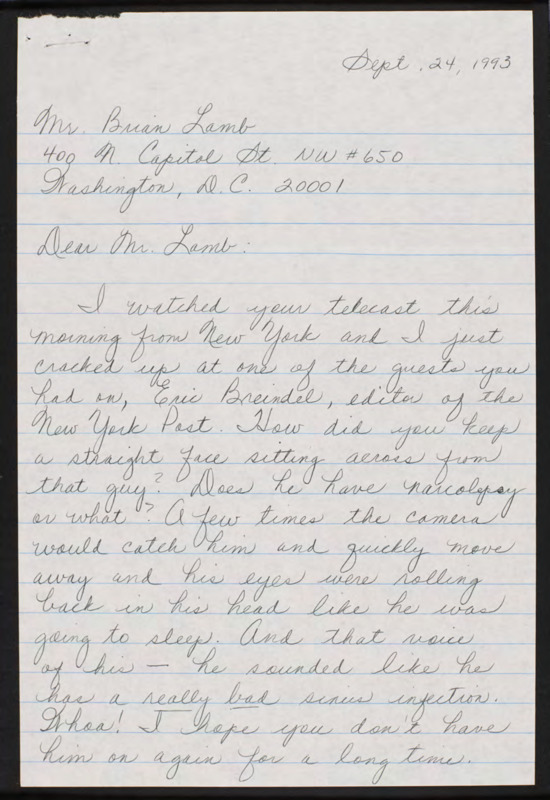 Sept. 24, 1993
Mr. Brian Lamb
400 N. Capitol St. NW #650
Washington, D.C. 20001
Dear Mr. Lamb:
I watched your telecast this
morning from New York and I just
cracked up at one of the guests you
had on, Eric Breindel, editor of the
New York Post. How did you keep
a straight face sitting across from
that guy? Does he have narcolepsy
or what? A few times the camera
would catch him and quickly move
away and his eyes were rolling
back in his head like he was
going to sleep. And that voice
of his — he sounded like he
has a really bad sinus infection.
Whoa! I hope you don't have
him on again for a long time.